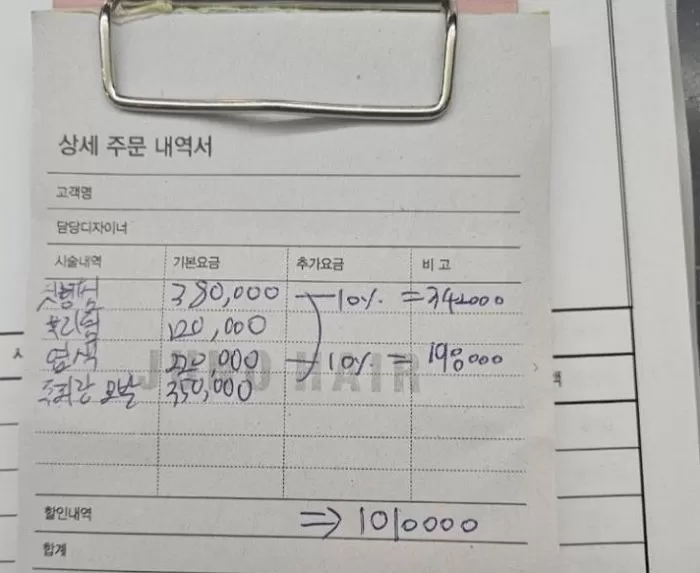 상세 주문 내역서
고객명
담당디자이너
시술내역 기본요금 추가요금 비고
380,000 10% =342000
120,000
염색 220,000 10% = 198000
모발 350,000
JUNO HAIR
할인내역 ⇒ 1010000
합계